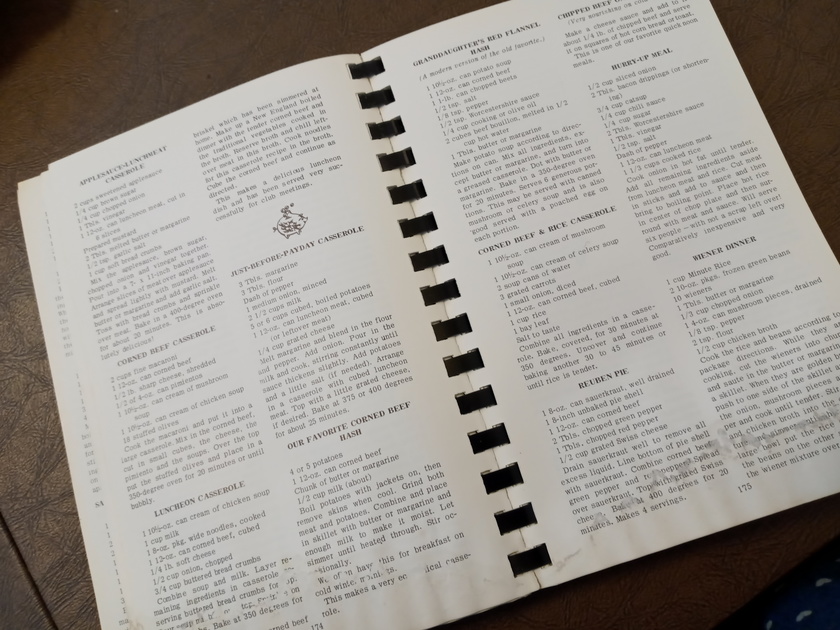 APPLESAUCE-LUNCHMEAT
CASSEROLE
2 cups sweetened applesauce
1/4 cup brown sugar
1/4 cup chopped onion
1 Tbs. vinegar
1 12-oz. can luncheon meat, cut in
8 slices
Prepared mustard
2 Tbs. melted butter or margarine
1/2 tsp. garlic salt
1 cup soft bread crumbs
Mix the applesauce, brown sugar,
chopped onion and vinegar together.
Pour into a 7- x 11-inch baking pan.
Arrange slices of meat over applesauce
and spread lightly with mustard. Melt
butter or margarine and add garlic salt.
Toss with bread crumbs and sprinkle
over meat. Bake in a 400-degree oven
for about 20 minutes. This is abso-
lutely delicious!
CORNED BEEF CASSEROLE
2 cups fine macaroni
1 12-oz. can corned beef
1/2 lb. sharp cheese, shredded
1/2 of 4-oz. can pimientos
1 10½-oz. can cream of mushroom
soup
1 10½-oz. can cream of chicken soup
18 stuffed olives
Cook the macaroni and put it into a
large casserole. Mix in the corned beef,
cut in small cubes, the cheese, the
pimiento and the soups. Over the top
put the stuffed olives and place in a
350-degree oven for 20 minutes or until
bubbly.
LUNCHEON CASSEROLE
1 10½-oz. can cream of chicken soup
1 cup milk
1 8-oz. pkg. wide noodles, cooked
1 12-oz. can corned beef, cubed
1/4 lb. soft cheese
1/2 cup onion, chopped
3/4 cup buttered bread crumbs
Combine soup and milk. Layer re-
maining ingredients in casserole
serving buttered bread crumbs for top.
Bake at 350 degrees for
corned beef
brisket which has been simmered at
home. Make up a New England boiled
dinner with the tender corned beef and
the traditional vegetables cooked in
the broth. Remove broth and chill left-
over meat in the broth. Cook noodles
for this casserole recipe in the broth.
Cube the corned beef and continue as
directed.
This makes a delicious luncheon
dish and has been served very suc-
cessfully for club meetings.
JUST-BEFORE-PAYDAY CASSEROLE
3 Tbs. margarine
3 Tbs. flour
Dash of pepper
1 medium onion, minced
2 cups milk
5 or 6 cups cubed, boiled potatoes
1 12-oz. can luncheon meat, cubed
(or leftover meat)
1/4 cup grated cheese
Melt margarine and blend in the flour
and pepper. Add onion. Pour in the
milk and cook, stirring constantly until
sauce thickens slightly. Add potatoes
and a little salt (if needed). Arrange
in a casserole with cubed luncheon
meat. Top with a little grated cheese,
if desired. Bake at 375 or 400 degrees
for about 25 minutes.
OUR FAVORITE CORNED BEEF
HASH
4 or 5 potatoes
1 12-oz. can corned beef
Chunk of butter or margarine
1/2 cup milk (about)
Boil potatoes with jackets on, then
remove skins when cool. Grind both
meat and potatoes. Combine and place
in skillet with butter or margarine and
enough milk to make it moist. Let
simmer until heated through. Stir oc-
casionally.
We often have this for breakfast on
cold winter mornings.
This makes a very economical casse-
role.
174
GRANDDAUGHTER'S RED FLANNEL
HASH
(A modern version of the old favorite.)
1 10½-oz. can potato soup
1 12-oz. can corned beef
1 1-lb. can chopped beets
1/2 tsp. salt
1/8 tsp. pepper
1/2 tsp. Worcestershire sauce
1/4 cup cooking or olive oil
2 cubes beef bouillon, melted in 1/2
cup hot water
1 Tbs. butter or margarine
Make potato soup according to direc-
tions on can. Mix all ingredients, ex-
cept butter or margarine, and turn into
a greased casserole. Dot with butter or
margarine. Bake in a 350-degree oven
for 20 minutes. Serves 6 generous por-
tions. This may be varied by adding
mushroom or celery soup and is also
good served with a poached egg on
each portion.
CORNED BEEF & RICE CASSEROLE
1 10½-oz. can cream of mushroom
soup
1 10½-oz. can cream of celery soup
2 soup cans of water
3 grated carrots
1 small onion, diced
1 12-oz. can corned beef, cubed
1 cup rice
1 bay leaf
Salt to taste
Combine all ingredients in a casse-
role. Bake, covered, for 30 minutes at
350 degrees. Uncover and continue
baking another 30 to 45 minutes or
until rice is tender.
REUBEN PIE
1 8-oz. can sauerkraut, well drained
1 8-inch unbaked pie shell
1 12-oz. can corned beef
2 Tbls. chopped green pepper
1 Tbls. chopped red pepper
1/2 cup grated Swiss cheese
Drain sauerkraut well to remove all
excess liquid. Line bottom of pie shell
with sauerkraut. Combine corned beef,
green pepper and red pepper. Spread
over sauerkraut. Top with grated Swiss
cheese. Bake at 400 degrees for 20
minutes. Makes 4 servings.
CHIPPED BEEF
(Very nourishing on cold
Make a cheese sauce and add to it
about 1/4 lb. of chipped beef and serve
it on squares of hot corn bread or toast.
This is one of our favorite quick noon
meals.
HURRY-UP MEAL
1/2 cup sliced onion
2 Tbs. bacon drippings (or shorten-
ing)
3/4 cup catsup
1/4 cup chili sauce
1/4 cup sugar
2 Tbs. Worcestershire sauce
1 Tbs. vinegar
1/2 tsp. salt
Dash of pepper
1 12-oz. can luncheon meat
1 1/3 cups cooked rice
Cook onion in hot fat until tender.
Add all remaining ingredients aside
from luncheon meat and rice. Cut meat
in sticks and add to sauce and then
bring to boiling point. Place hot rice
in center of chop plate and then sur-
round with meat and sauce. Will serve
six people — with not a scrap left over!
Comparatively inexpensive and very
good.
WIENER DINNER
1 cup Minute Rice
2 10-oz. pkgs. frozen green beans
10 wieners
1 Tbs. butter or margarine
1/3 cup chopped onion
1 4-oz. can mushroom pieces, drained
1/8 tsp. pepper
2 tsp. flour
1/2 cup chicken broth
Cook the rice and beans according to
package directions. While they are
cooking, cut the wieners into chunks
and saute in the butter or margarine in
a skillet. When they are golden brown,
push to one side of the skillet and add
the onion, mushroom pieces and pep-
per and cook until tender. Stir in flour
and chicken broth into
large platter put the hot
the beans on the other
the wiener mixture over
175